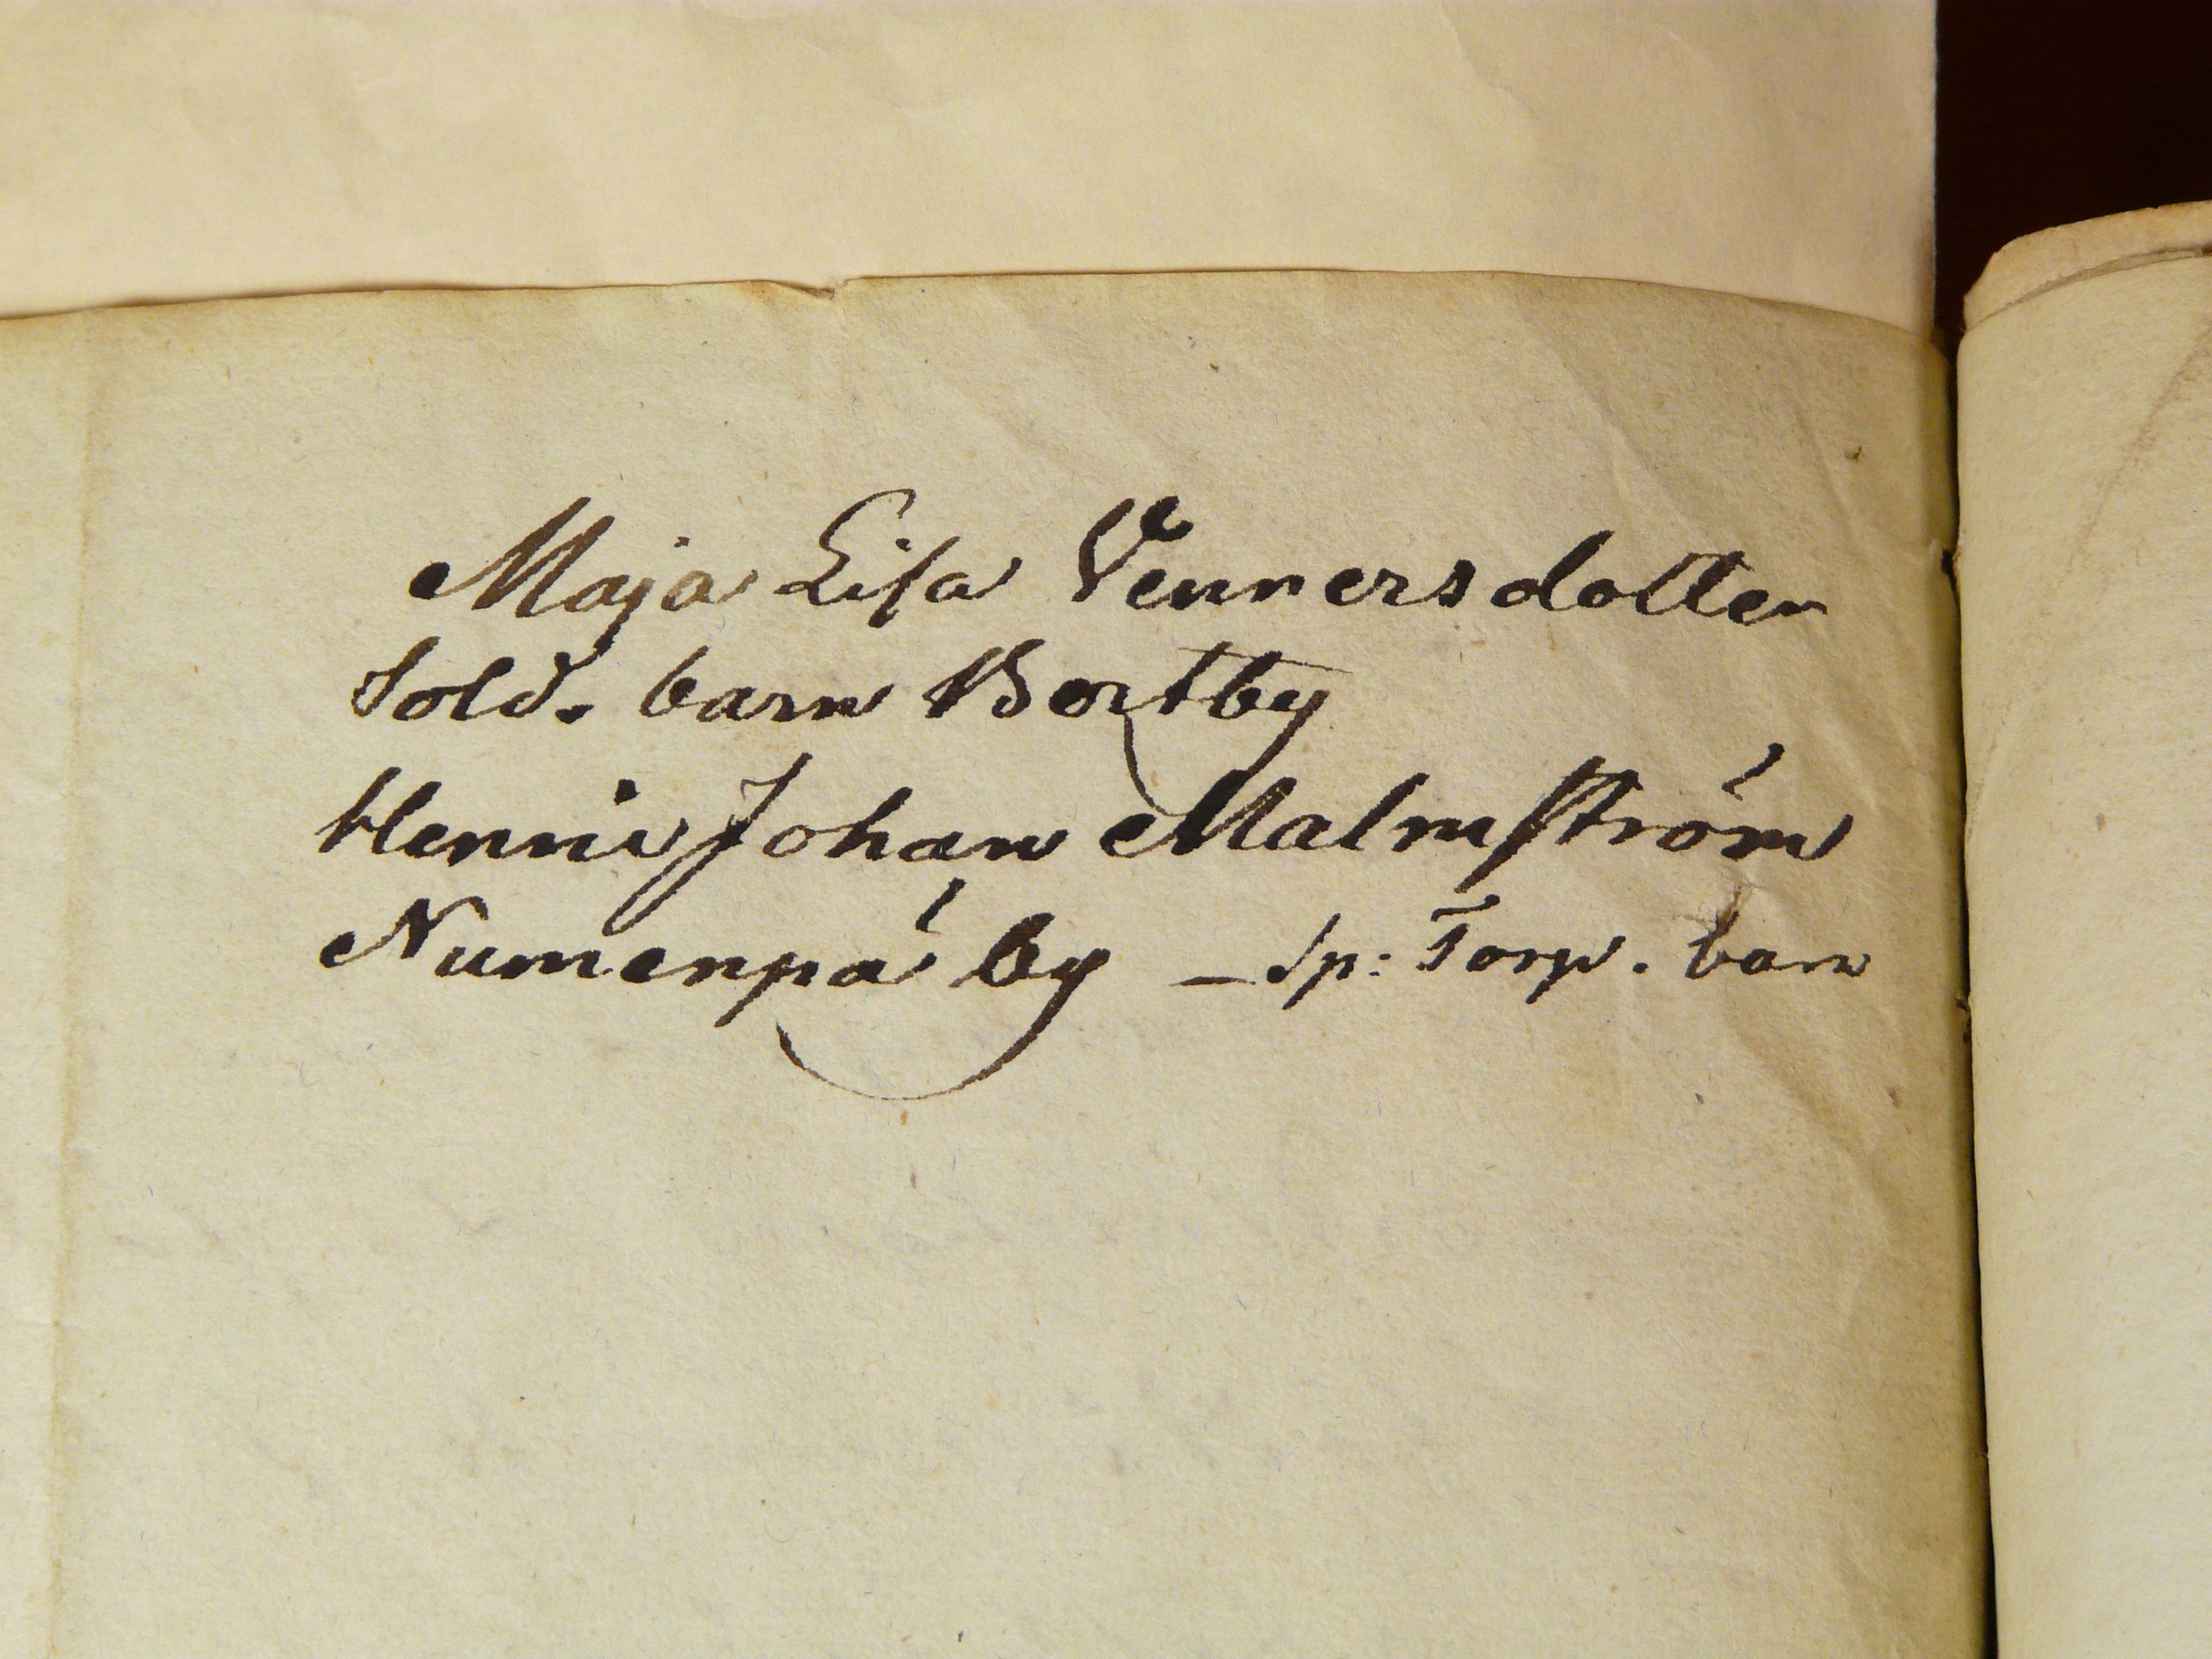 Maja Lisa Vennersdotter
Sold. barn Bortby
Henric Johan Malmström
Numenpä by – Sp: Torp. barn